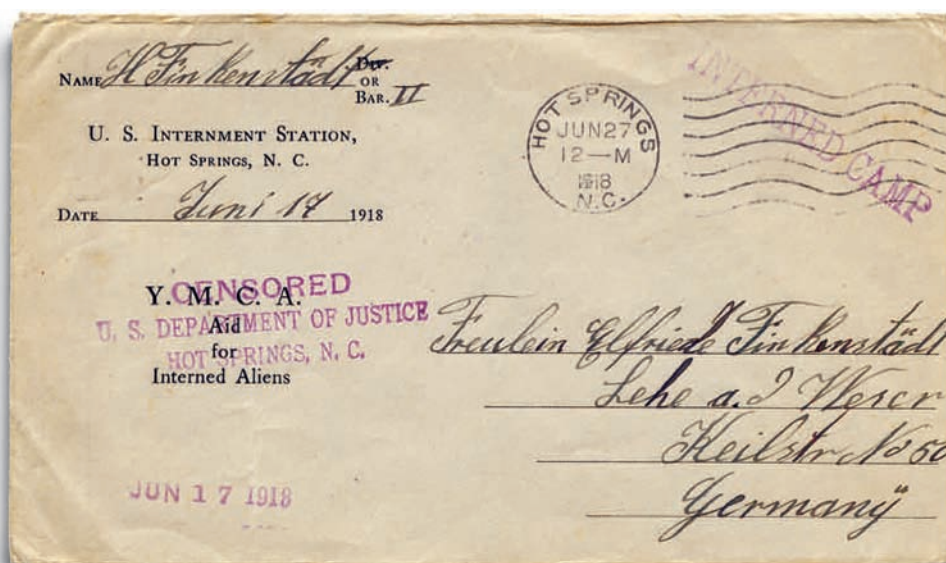 NAME H Finkenstädt Div.
OR
BAR. II
U. S. INTERNMENT STATION,
HOT SPRINGS, N. C.
DATE Juni 17 1918
HOT SPRINGS
JUN 27
12—M
1918
N.C.
INTERNED CAMP
Y. M. C. A.
Aid
for
Interned Aliens
CENSORED
U. S. DEPARTMENT OF JUSTICE
HOT SPRINGS, N. C.
Freulein Elfriede Finkenstädt
Lehe a. d Weser
Keilstr No 50
Germany
JUN 17 1918